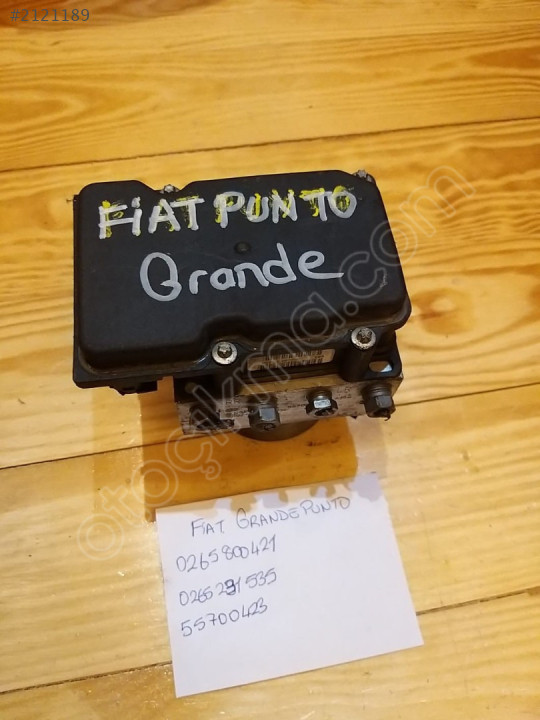 #2121189
FiAT PUNTO
Grande
otoçıkma.com
FIAT GRANDE PUNTO
0265800421
0265231535
55700423